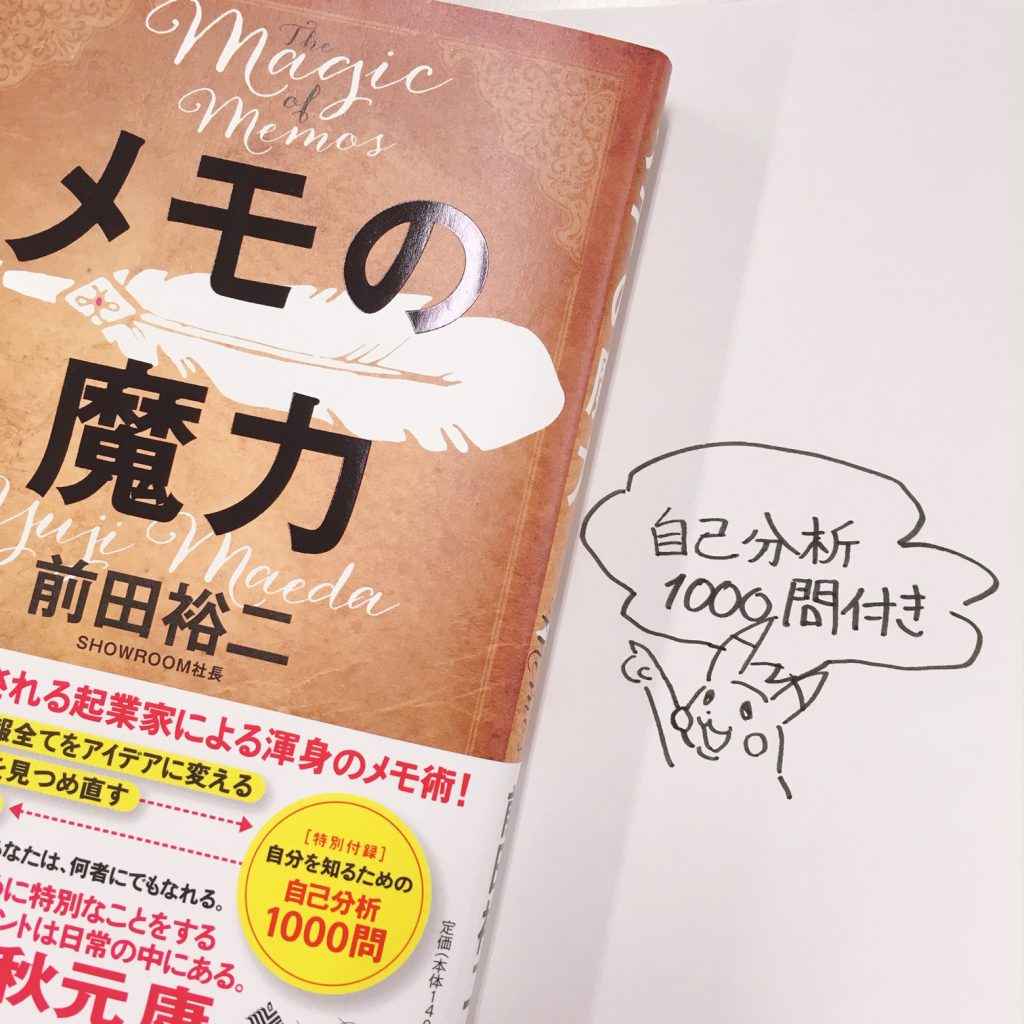 The
Magic
of
Memos
メモの
魔力
Yuji Maeda
前田裕二
SHOWROOM社長
される起業家による渾身のメモ術!
報全てをアイデアに変える
を見つめ直す
あなたは、何者にでもなれる。
めに特別なことをする
ントは日常の中にある。
秋元 康
[特別付録]
自分を知るための
自己分析
1000問
定価(本体14
自己分析
1000問付き